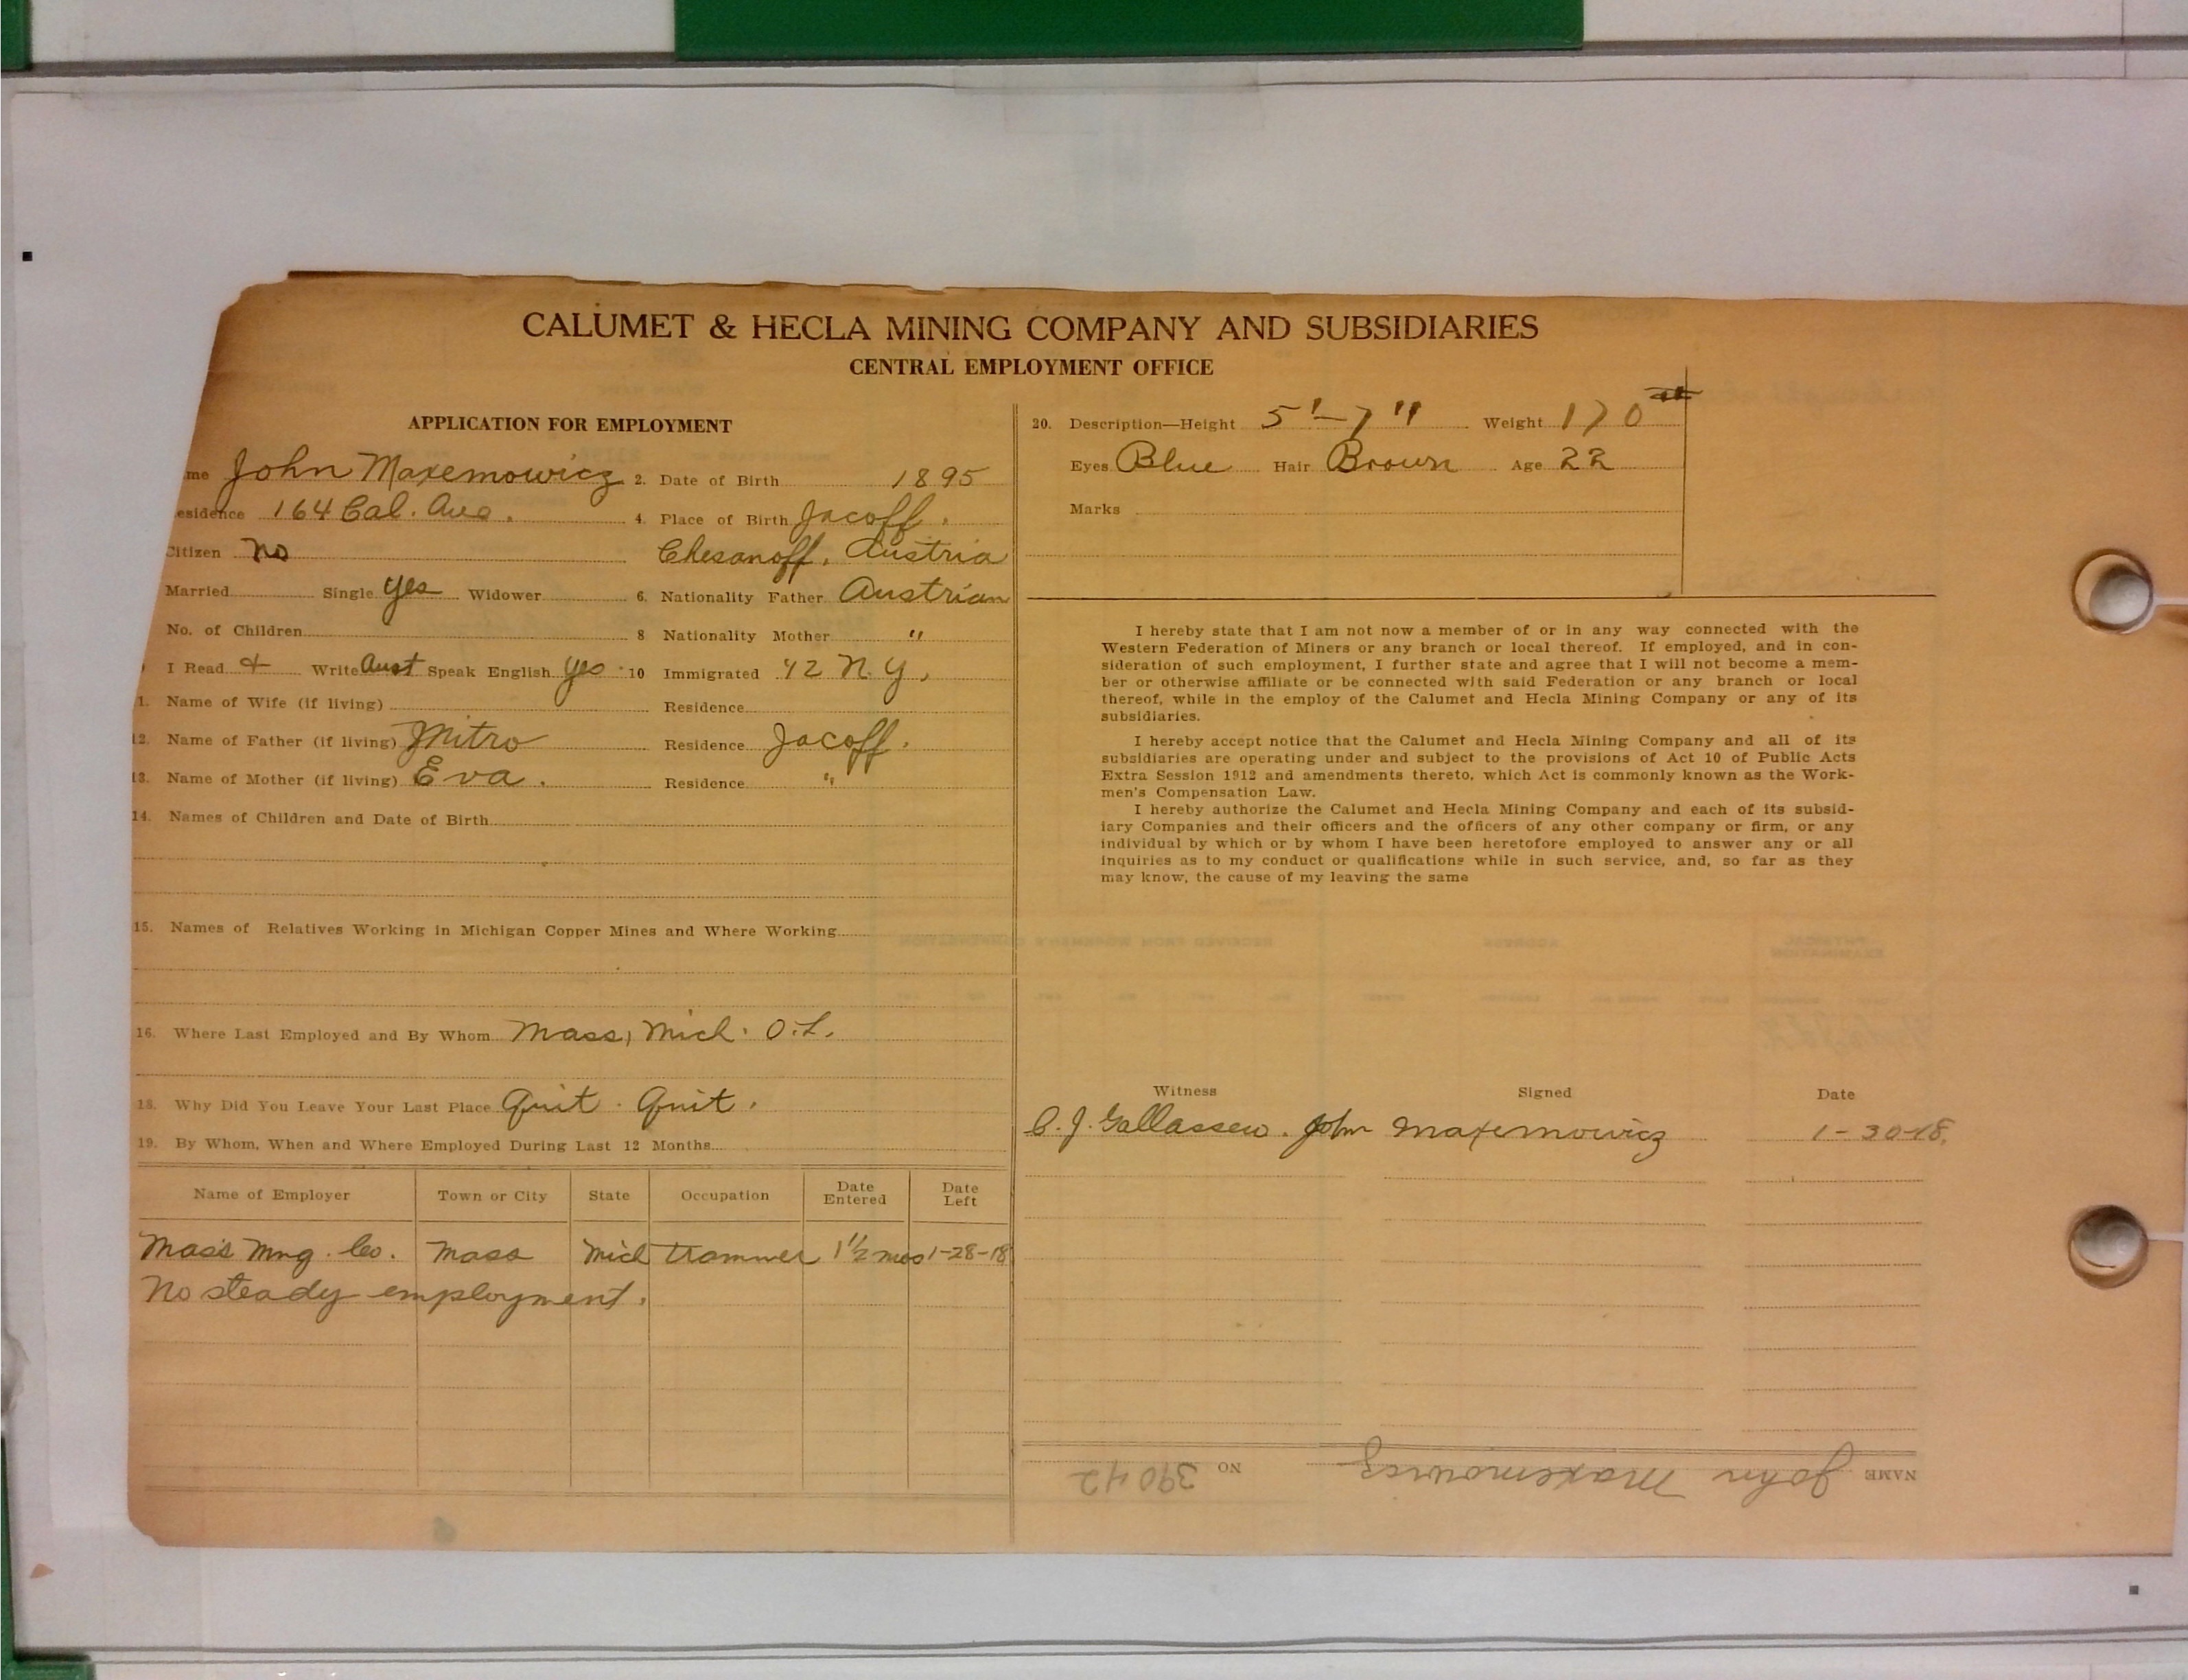 CALUMET & HECLA MINING COMPANY AND SUBSIDIARIES
CENTRAL EMPLOYMENT OFFICE
APPLICATION FOR EMPLOYMENT
me John Maxemowicz 2. Date of Birth 1895
esidence 164 Cal. Ave. 4. Place of Birth Jacoff.
Citizen no Chesanoff, Austria
Married Single yes Widower 6. Nationality Father Austrian
No. of Children 8 Nationality Mother "
I Read & Write Aust Speak English yes 10 Immigrated '12 N.Y.
1. Name of Wife (if living) Residence
12. Name of Father (if living) Mitro Residence Jacoff.
13. Name of Mother (if living) Eva. Residence "
14. Names of Children and Date of Birth
15. Names of Relatives Working in Michigan Copper Mines and Where Working
16. Where Last Employed and By Whom Mass, Mich. O.L.
18. Why Did You Leave Your Last Place Quit. Quit.
19. By Whom, When and Where Employed During Last 12 Months
Name of Employer Town or City State Occupation Date Entered Date Left
Mass Mng. Co. Mass Mich trammer 1 1/2 mos 1-28-18
No steady employment.
20. Description—Height 5'-7" Weight 170 #
Eyes Blue Hair Brown Age 22
Marks
I hereby state that I am not now a member of or in any way connected with the
Western Federation of Miners or any branch or local thereof. If employed, and in con-
sideration of such employment, I further state and agree that I will not become a mem-
ber or otherwise affiliate or be connected with said Federation or any branch or local
thereof, while in the employ of the Calumet and Hecla Mining Company or any of its
subsidiaries.
I hereby accept notice that the Calumet and Hecla Mining Company and all of its
subsidiaries are operating under and subject to the provisions of Act 10 of Public Acts
Extra Session 1912 and amendments thereto, which Act is commonly known as the Work-
men's Compensation Law.
I hereby authorize the Calumet and Hecla Mining Company and each of its subsid-
iary Companies and their officers and the officers of any other company or firm, or any
individual by which or by whom I have been heretofore employed to answer any or all
inquiries as to my conduct or qualifications while in such service, and, so far as they
may know, the cause of my leaving the same
Witness Signed Date
John Maxemowicz 1-30-18.
NAME John Maxemowicz NO 39042